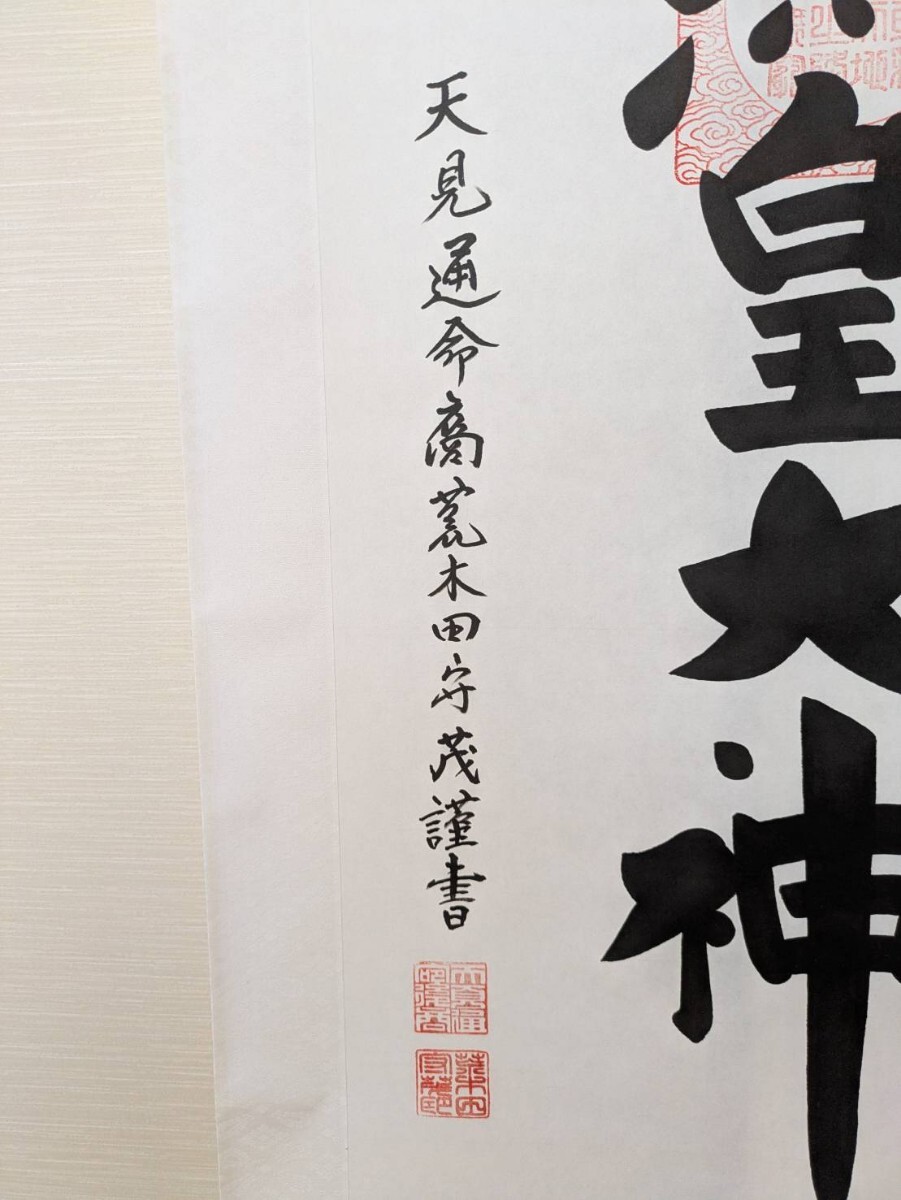 皇大神
天見通命裔荒木田守茂謹書